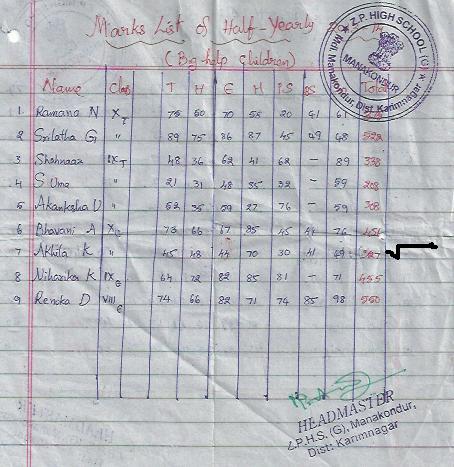 Marks List of Half-Yearly
Z.P. HIGH SCHOOL (G)
MANAKONDUR
Mdl. Manakondur, Dist. Karimnagar
(Big help children)
Name Class T H E M P.S BS Total
1. Ramana N X T 75 60 70 55 20 41 61
2 Srilatha G " 89 75 86 87 45 49 68 522
3 Shahnaaz IX T 48 36 62 41 62 - 89 338
4 S Uma " 21 31 48 35 32 - 59 208
5 Akanksha U " 62 35 59 27 76 - 59 308
6 Bhavani A X 73 66 67 85 45 41 76 451
7 Akhila K " 45 48 44 70 30 41 69 347
8 Niharika K IX E 64 72 82 85 81 - 71 455
9 Renuka D VIII E 74 66 82 71 74 85 98 550
HEADMASTER
Z.P.H.S. (G), Manakondur,
Dist: Karimnagar